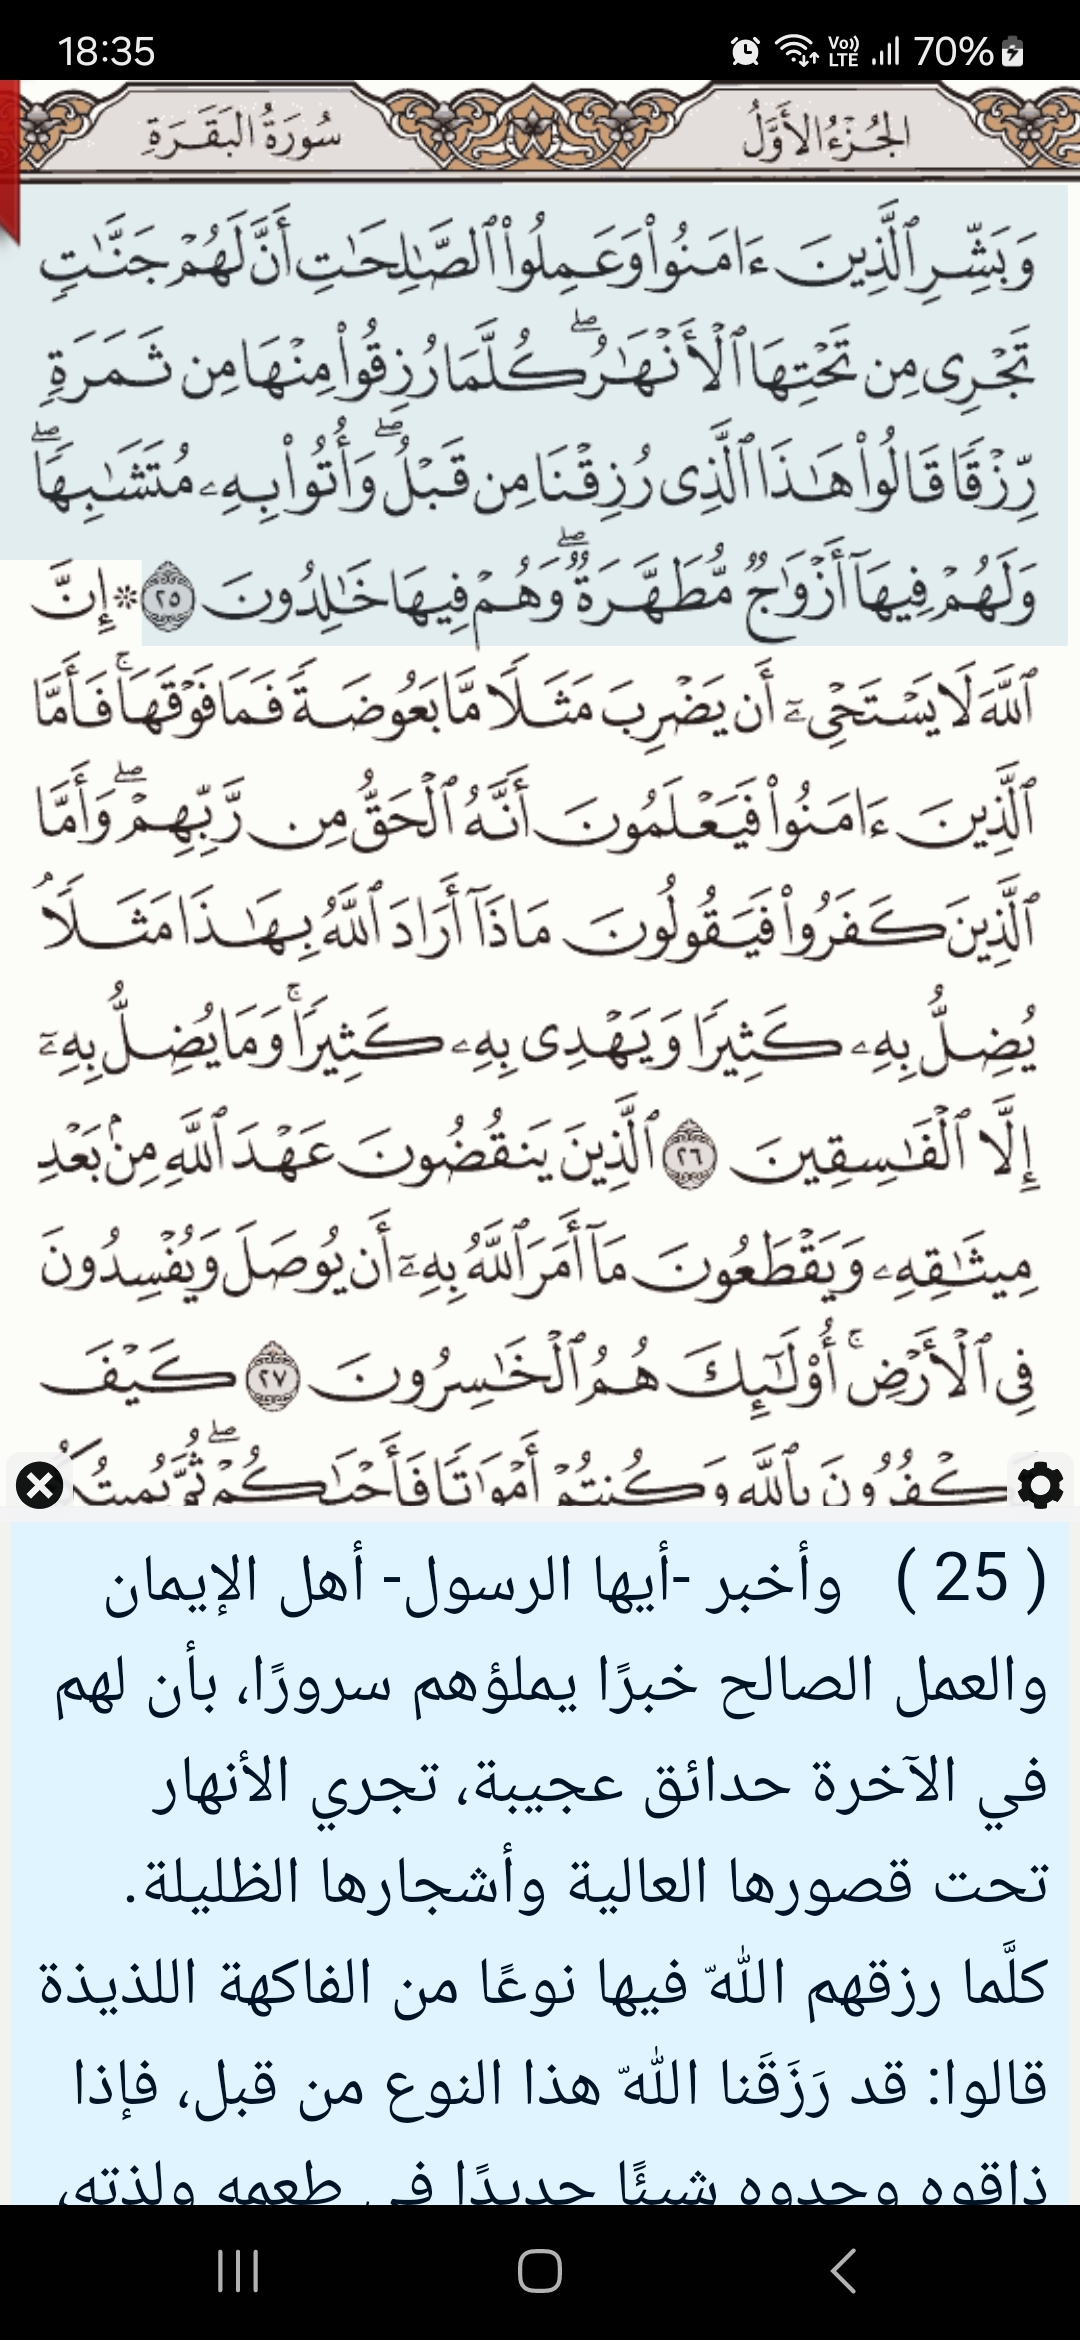 18:35
Vo)) LTE 70%
الجُزْءُ الأَوَّلُ
سُورَةُ البَقَرَةِ
وَبَشِّرِ ٱلَّذِينَ ءَامَنُوا۟ وَعَمِلُوا۟ ٱلصَّٰلِحَٰتِ أَنَّ لَهُمْ جَنَّٰتٍ
تَجْرِى مِن تَحْتِهَا ٱلْأَنْهَٰرُ ۖ كُلَّمَا رُزِقُوا۟ مِنْهَا مِن ثَمَرَةٍ
رِّزْقًا قَالُوا۟ هَٰذَا ٱلَّذِى رُزِقْنَا مِن قَبْلُ ۖ وَأُتُوا۟ بِهِۦ مُتَشَٰبِهًا ۖ
وَلَهُمْ فِيهَآ أَزْوَٰجٌ مُّطَهَّرَةٌ ۖ وَهُمْ فِيهَا خَٰلِدُونَ ٢٥ ۞ إِنَّ
ٱللَّهَ لَا يَسْتَحْىِۦٓ أَن يَضْرِبَ مَثَلًا مَّا بَعُوضَةً فَمَا فَوْقَهَا ۚ فَأَمَّا
ٱلَّذِينَ ءَامَنُوا۟ فَيَعْلَمُونَ أَنَّهُ ٱلْحَقُّ مِن رَّبِّهِمْ ۖ وَأَمَّا
ٱلَّذِينَ كَفَرُوا۟ فَيَقُولُونَ مَاذَآ أَرَادَ ٱللَّهُ بِهَٰذَا مَثَلًا ۘ
يُضِلُّ بِهِۦ كَثِيرًا وَيَهْدِى بِهِۦ كَثِيرًا ۚ وَمَا يُضِلُّ بِهِۦٓ
إِلَّا ٱلْفَٰسِقِينَ ٢٦ ٱلَّذِينَ يَنقُضُونَ عَهْدَ ٱللَّهِ مِنۢ بَعْدِ
مِيثَٰقِهِۦ وَيَقْطَعُونَ مَآ أَمَرَ ٱللَّهُ بِهِۦٓ أَن يُوصَلَ وَيُفْسِدُونَ
فِى ٱلْأَرْضِ ۚ أُو۟لَٰٓئِكَ هُمُ ٱلْخَٰسِرُونَ ٢٧ كَيْفَ
تَكْفُرُونَ بِٱللَّهِ وَكُنتُمْ أَمْوَٰتًا فَأَحْيَٰكُمْ ۖ ثُمَّ يُمِيتُكُمْ
( 25 ) وأخبر -أيها الرسول- أهل الإيمان
والعمل الصالح خبرًا يملؤهم سرورًا، بأن لهم
في الآخرة حدائق عجيبة، تجري الأنهار
تحت قصورها العالية وأشجارها الظليلة.
كلَّما رزقهم اللّه فيها نوعًا من الفاكهة اللذيذة
قالوا: قد رَزَقَنا اللّه هذا النوع من قبل، فإذا
ذاقوه وجدوه شيئًا جديدًا في طعمه ولذته،